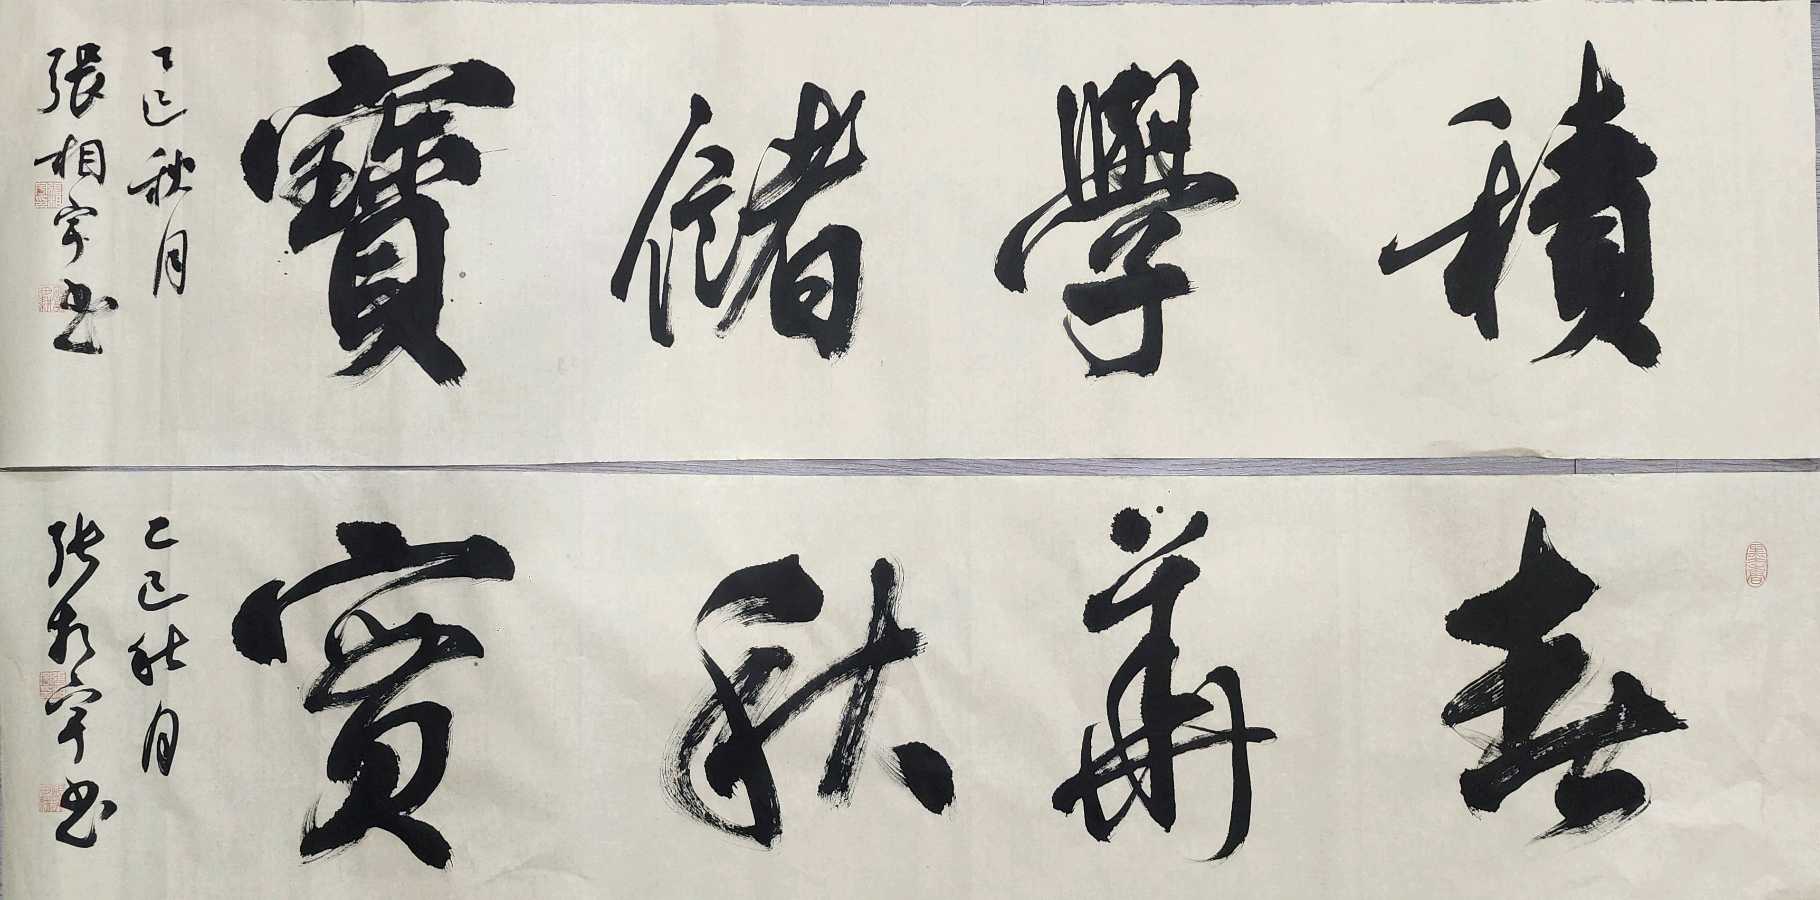 積學儲寶
乙巳秋月
張相宇书
春華秋實
乙巳秋月
張相宇书